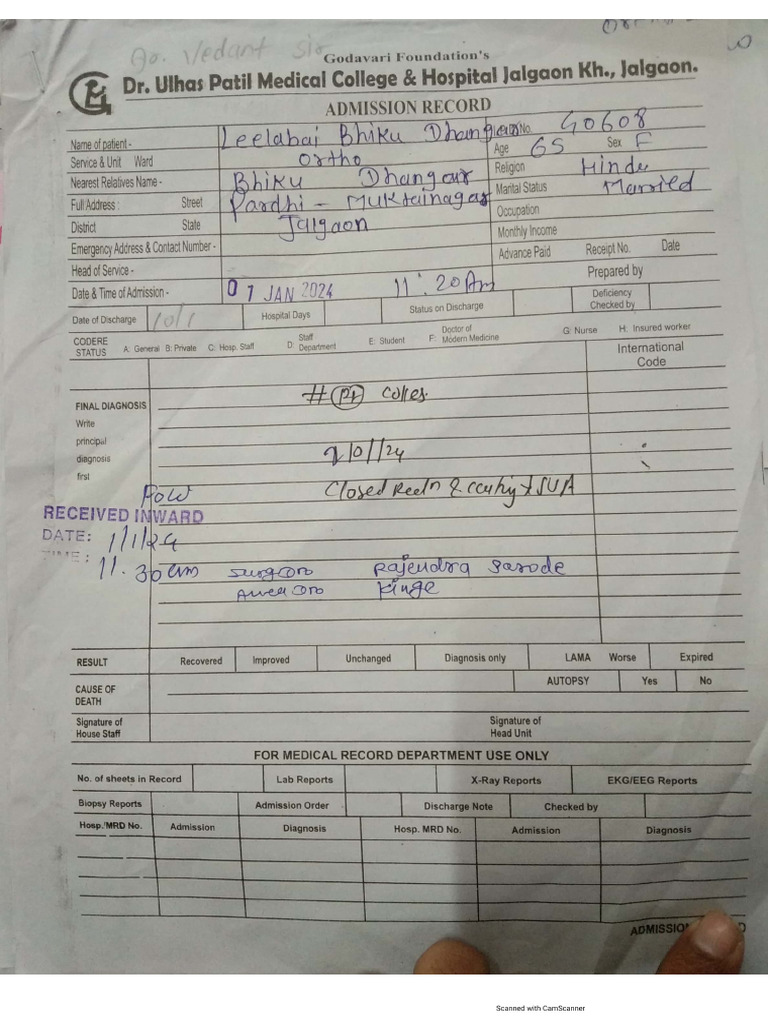 Dr. Vedant sir
Godavari Foundation's
Dr. Ulhas Patil Medical College & Hospital Jalgaon Kh., Jalgaon.
ADMISSION RECORD
Name of patient - Leelabai Bhiku Dhangar No. 40608
Service & Unit Ward Ortho Age 65 Sex F
Nearest Relatives Name - Bhiku Dhangar Religion Hindu
Full Address : Street Pardhi - Muktainagar Marital Status Married
District State Jalgaon Occupation
Emergency Address & Contact Number - Monthly Income
Head of Service - Advance Paid Receipt No. Date
Date & Time of Admission - 01 JAN 2024 11:20 Am Prepared by
Date of Discharge 10/1 Hospital Days Status on Discharge Deficiency Checked by
CODERE STATUS A: General B: Private C: Hosp. Staff D: Staff Department E: Student F: Doctor of Modern Medicine G: Nurse H. Insured worker
International Code
FINAL DIAGNOSIS # Colles
Write
principal
diagnosis /24
first
Closed Redn &
RECEIVED INWARD
DATE: 1/1/24
TIME: 11.30am
Surgeon Rajendra Sarode
Kinge
RESULT Recovered Improved Unchanged Diagnosis only LAMA Worse Expired
CAUSE OF DEATH AUTOPSY Yes No
Signature of House Staff Signature of Head Unit
FOR MEDICAL RECORD DEPARTMENT USE ONLY
No. of sheets in Record Lab Reports X-Ray Reports EKG/EEG Reports
Biopsy Reports Admission Order Discharge Note Checked by
Hosp./MRD No. Admission Diagnosis Hosp. MRD No. Admission Diagnosis
ADMISSION
Scanned with CamScanner